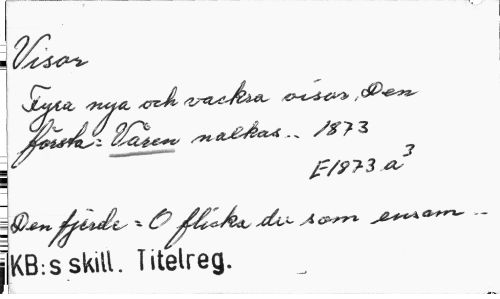 Visor
Fyra nya och vackra visor, Den
första = Våren nalkas.. 1873
E1873 a³
Den fjerde = O flicka du som ensam ..
KB:s skill. Titelreg.